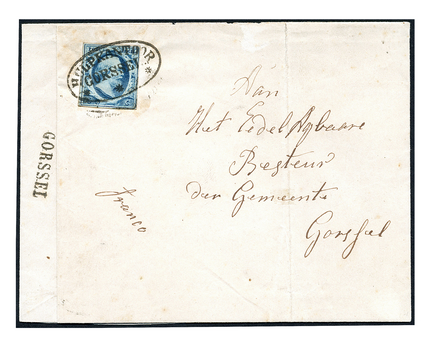 HULPKANTOOR
GORSSEL
Aan
Het Edel Agbaare
Bestuur
der Gemeente
Gorssel
franco
GORSSEL